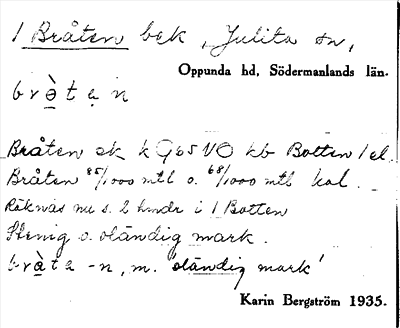 1 Bråten bek, Julita sn,
Oppunda hd, Södermanlands län.
brɔ̀tẹn
Bråten ek k Q65 VO kb Botten 1 el.
Bråten 85/1000 mtl o. 68/1000 mtl kal.
Räknas nu s. 2 hmdr i 1 Botten
Stenig o. oländig mark.
brɔ̀ta -n, m. 'oländig mark'
Karin Bergström 1935.